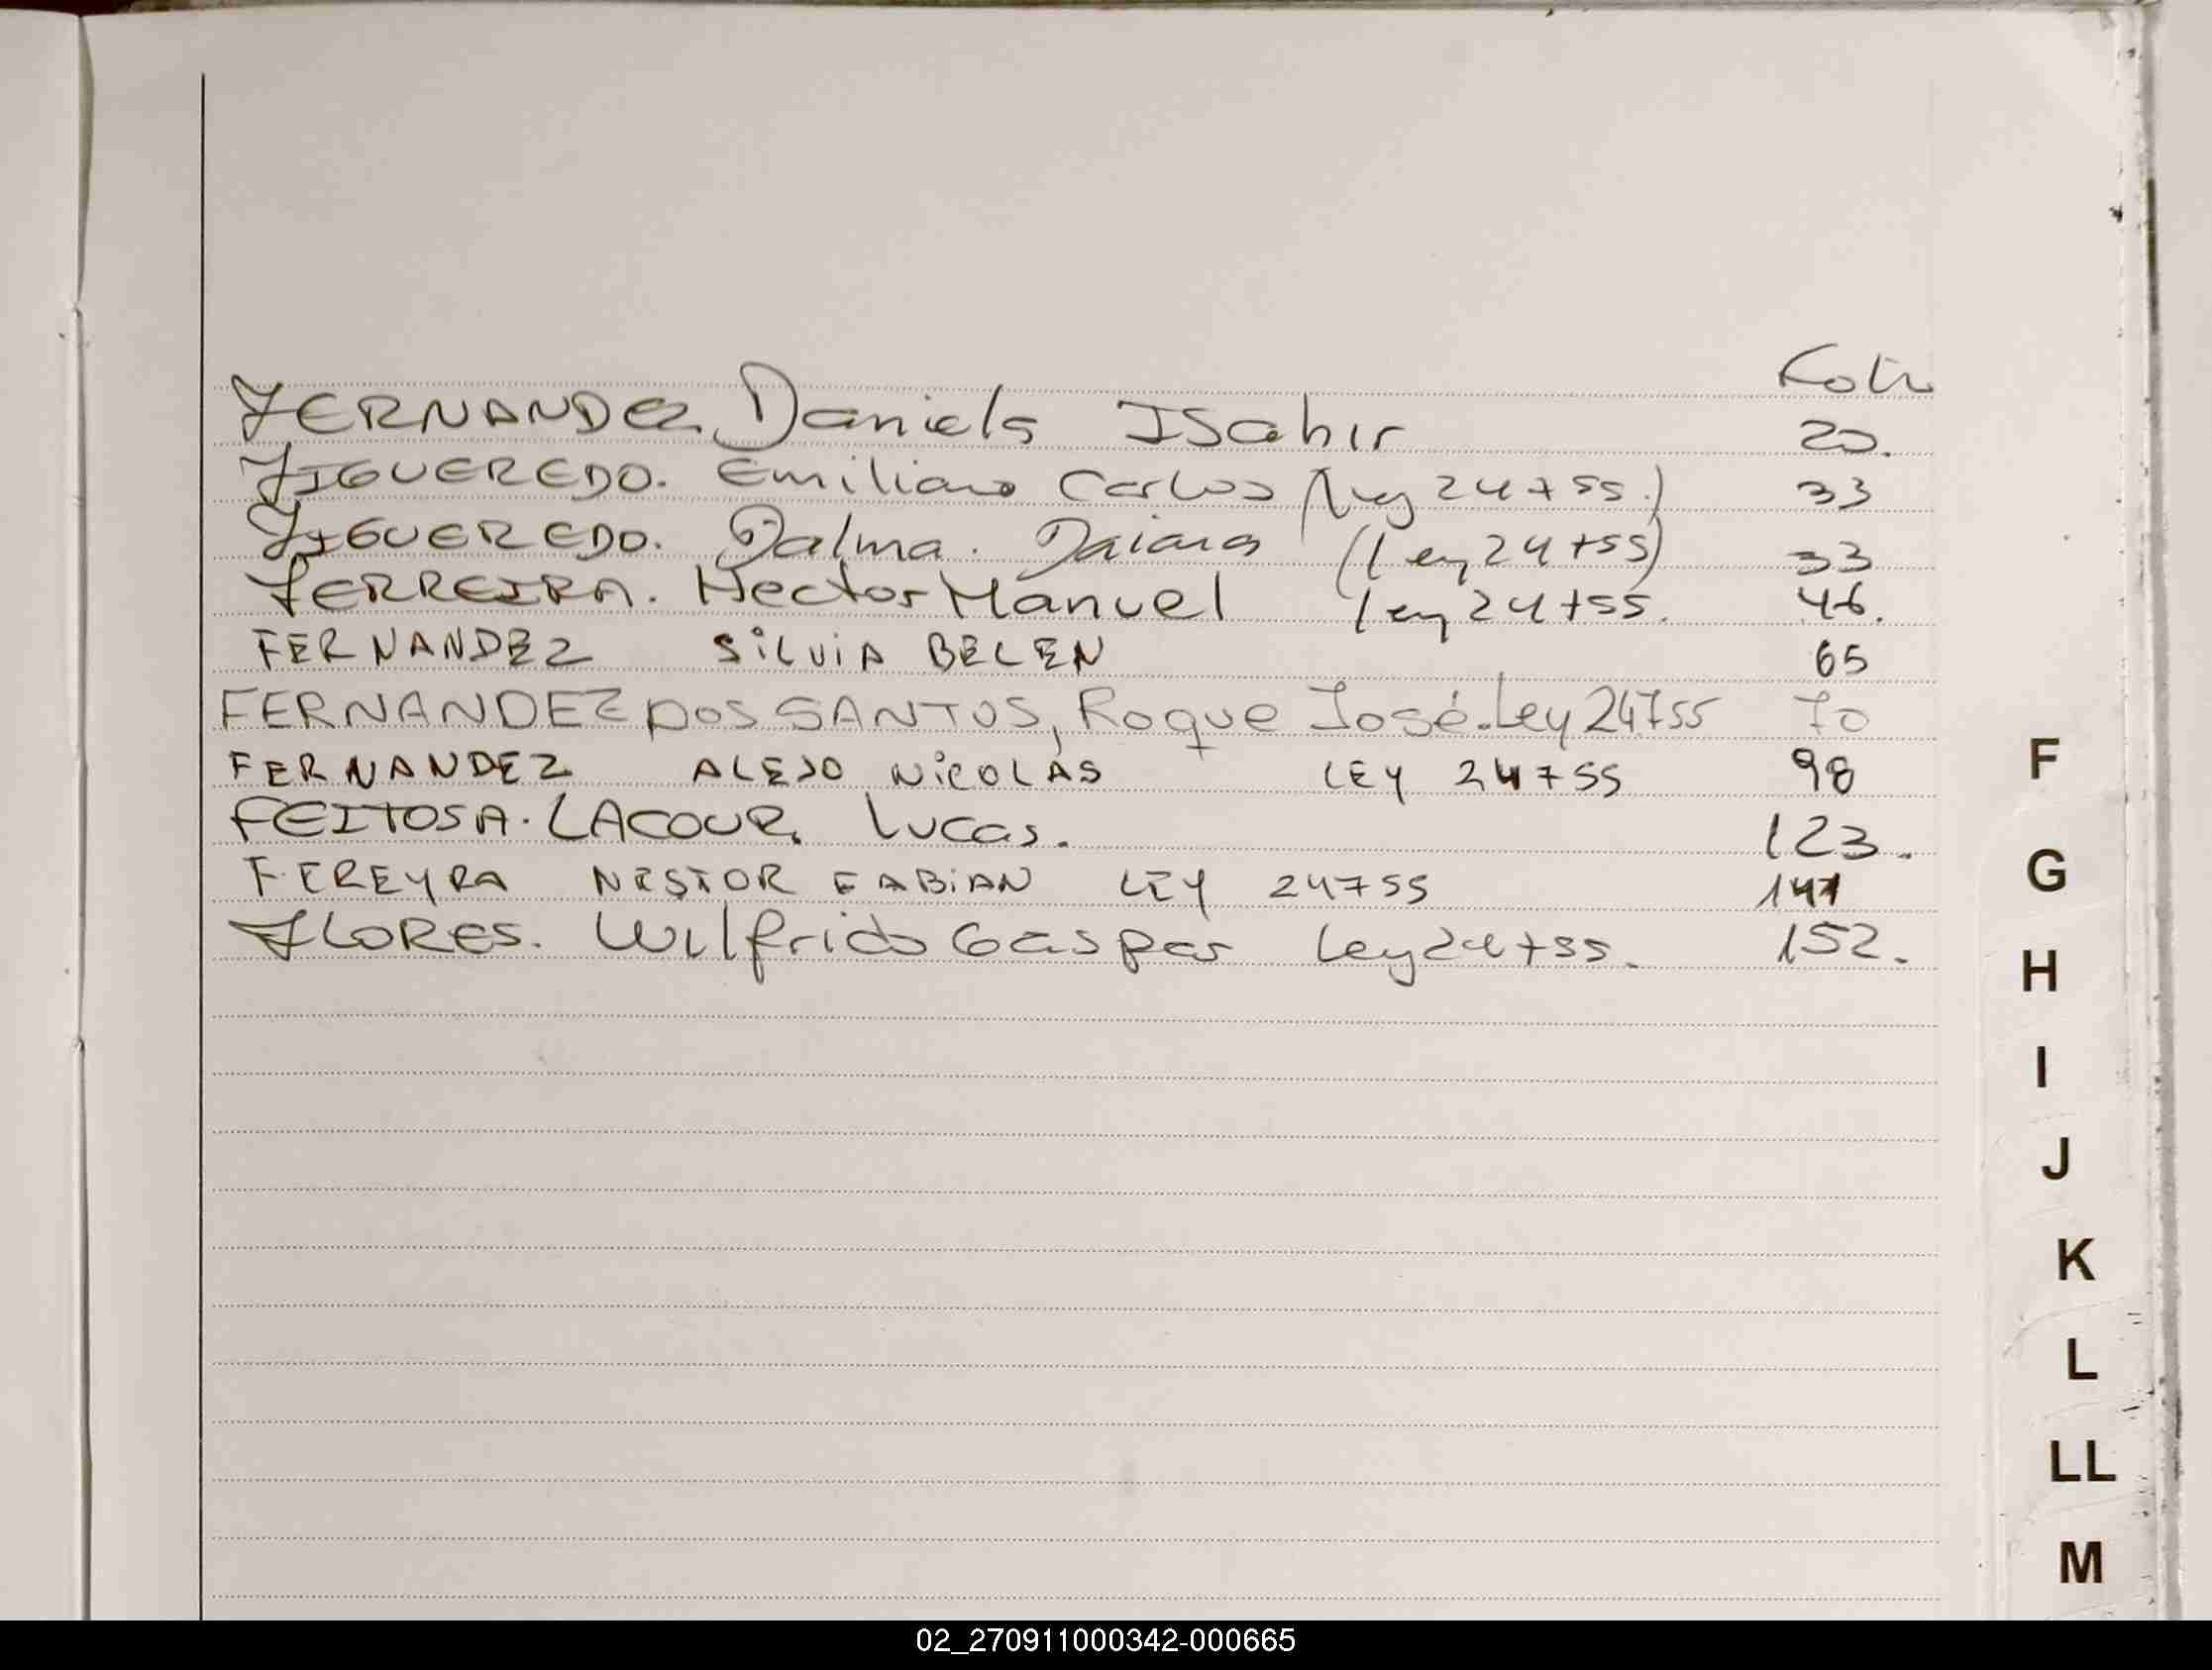 Folio
FERNANDEZ Daniela Isahir 20.
FIGUEREDO. Emiliano Carlos (Ley 24755.) 33
FIGUEREDO. Dalma. Daiana (Ley 24755) 33
FERREIRA. Hector Manuel Ley 24755. 46.
FERNANDEZ SILVIA BELEN 65
FERNANDEZ DOS SANTOS, Roque José. Ley 24755 70
FERNANDEZ ALEJO NICOLÁS LEY 24755 98
FEITOSA. LACOUR. Lucas. 123.
FEREYRA NESTOR FABIAN LEY 24755 141
FLORES. Wilfrido Gaspar Ley 24755. 152.
F
G
H
I
J
K
L
LL
M
02_270911000342-000665